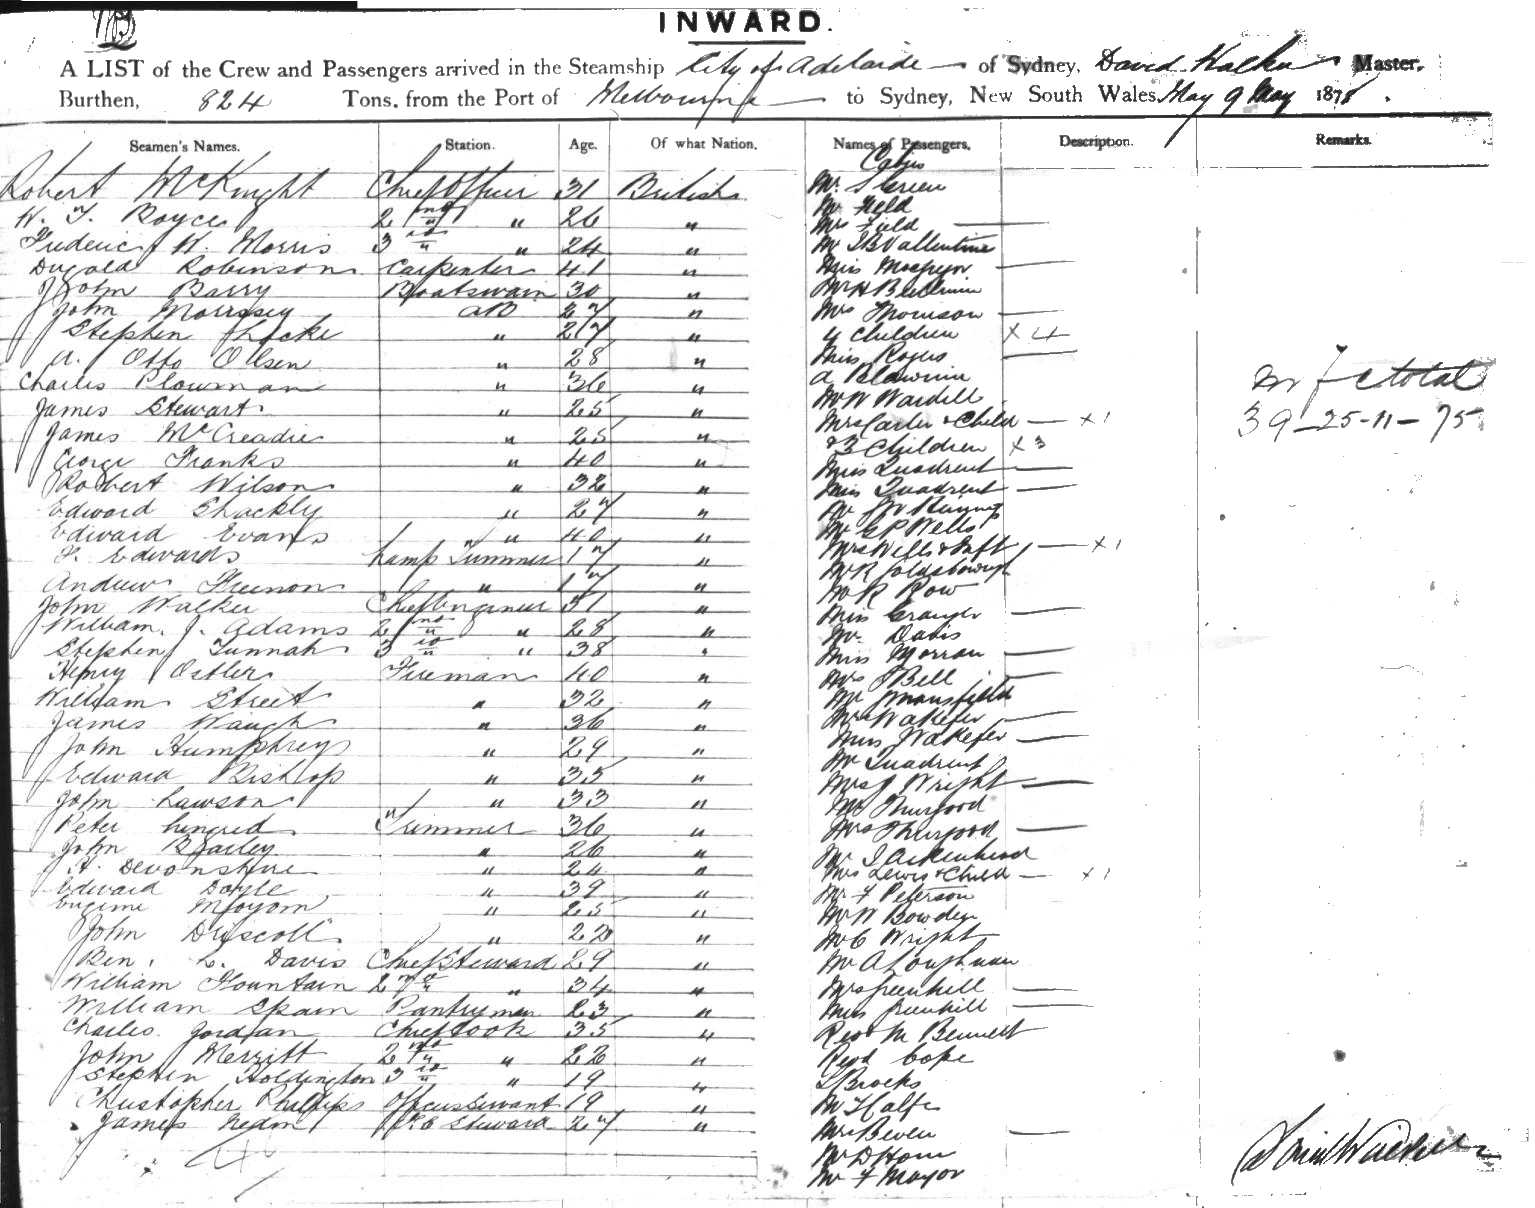 INWARD.
A LIST of the Crew and Passengers arrived in the Steamship City of Adelaide of Sydney, David Walker Master,
Burthen, 824 Tons, from the Port of Melbourne to Sydney, New South Wales, May 9 May 187
Seamen's Names. Station. Age. Of what Nation. Names of Passengers. Description. Remarks.
Cabin
Robert McKnight Chief Officer 31 British Mr Green
W. T. Royce 2nd " " 26 " Mr Field
Mrs Field
Frederic W. Morris 3rd " " 24 " Mr Vallentine
Dugald Robinson Carpenter 41 " Miss
John Barry Boatswain 30 " Mr H
John Morrissey AB 27 " Mrs Thomson
Stephen Locke " 27 " 4 Children x 4
A. Otto Olsen " 28 " Miss Rogers
Charles Plowman " 36 " A
m f c total
James Stewart " 25 " Mr W Wardell
39-25-11-75
James McCreadie " 25 " Mrs Carter & Child x 1
George Franks " 40 " & 3 Children x 3
Robert Wilson " 32 " Miss Quadrent
Miss Quadrent
Edward Shackly " 27 " Mr
Edward Evans " 40 " Mr G P Wells
F. Edwards Lamp Trimmer 17 " Mrs Wells & Inft x 1
Andrew Freenon " 17 " Mr R Goldsborough
John Walker Chief Engineer 31 " Mr R Row
William J. Adams 2nd " " 28 " Miss Granger
Stephen Tunnah 3rd " " 38 " Mr Davis
Miss Morran
Henry Ostler Fireman 40 " Mrs J Bell
William Street " 32 " Mr Mansfield
James Waugh " 36 " Mrs Wakefer
John Humphreys " 29 " Miss Wakefer
Edward Bishop " 35 " Mr Quadrent
John Lawson " 33 " Mrs J Wright
Peter Trimmer 36 " Mr Thurgood
Mrs Thurgood
John Brailey " 26 " Mr J Aikenhead
H. Devonshire " 24 " Mrs Lewis & Child x 1
Edward Doyle " 39 " Mr F Peterson
Eugene " 25 " Mr W Bowden
John Driscoll " 22 " Mr C Wright
Ben. C. Davis Chief Steward 29 " Mr A Loughnan
William Fountain 2nd " " 34 " Mrs Greenhill
William Spain Pantryman 23 " Miss Greenhill
Charles Jordan Chief Cook 35 " Revd M Bennett
John Merritt 2nd " " 22 " Revd Cope
Stephen Holdington 3rd " " 19 " J Brocks
Christopher Phillips Officers Servant 19 " Mr Halfe
James F.C Steward 27 " Mrs Beven
Mr D Horn
Mr F Mayor
David Walker